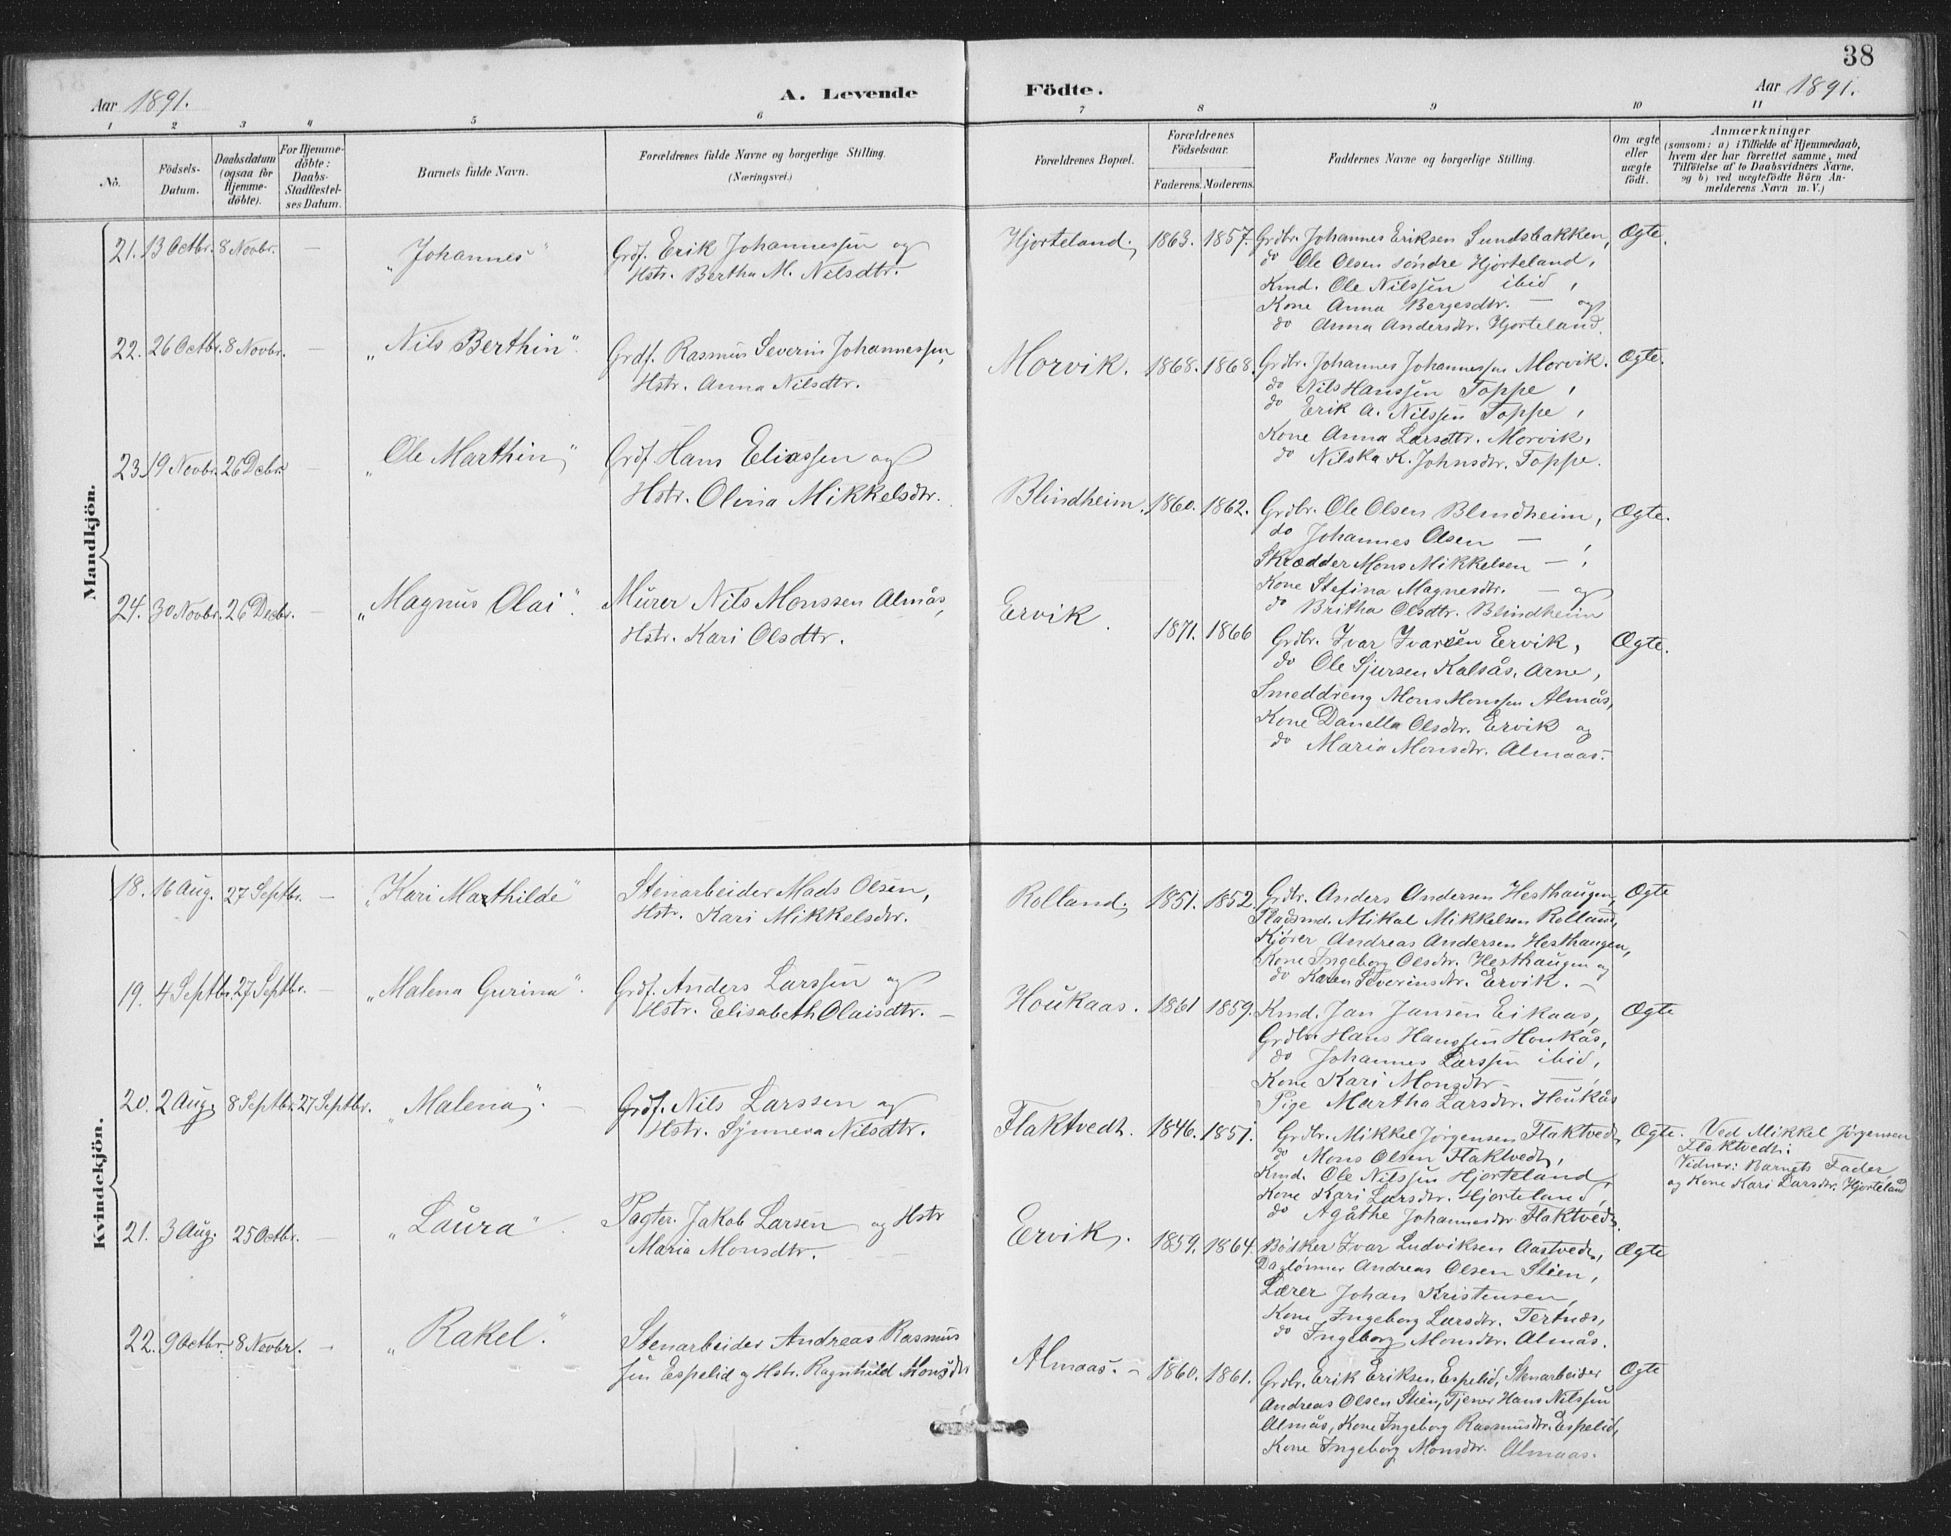 38
Aar 1891. A. Levende Födte. Aar 1891.
1 2 3 4 5 6 7 8 9 10 11
No.
Födsels-
Datum.
Daabsdatum
(ogsaa for
Hjemme-
döbte).
For Hjemme-
döbte:
Daabs-
Stadfestel-
ses Datum.
Barnets fulde Navn.
Forældrenes fulde Navne og borgerlige Stilling.
(Næringsvei.)
Forældrenes Bopæl.
Forældrenes
Födselsaar.
Faderens. Moderens.
Faddernes Navne og borgerlige Stilling.
Om ægte
eller
uægte
födt.
Anmærkninger
(saasom: a) i Tilfælde af Hjemmedaab,
hvem der har forrettet samme, med
Tilföielse af to Daabsvidners Navne,
og b) ved uægtefödte Börn An-
melderens Navn m. V.)
Mandkjön.
21. 13 Octbr. 8 Novbr. — "Johannes"
Grdf. Erik Johannessen og
Hstr. Bertha M. Nilsdtr.
Hjorteland. 1863. 1857.
Grdbr. Johannes Eriksen Sundsbakken,
do Ole Olsen söndre Hjorteland,
Kmd. Ole Nilssen ibid,
Kone Anna Bergesdtr. — og
do Anna Andersdtr. Hjorteland.
Ægte.
22. 26 Octbr. 8 Novbr. — "Nils Berthin".
Grdf. Rasmus Severin Johannessen,
Hstr. Anna Nilsdtr.
Morvik. 1868. 1868.
Grdbr. Johannes Johannessen Morvik.
do Nils Hanssen Toppe,
do Erik A. Nilssen Toppe,
Kone Anna Larsdtr. Morvik,
do Nilska K. Johnsdtr. Toppe.
Ægte.
23. 19 Novbr. 26 Decbr. — "Ole Marthin"
Grdf. Hans Eliassen og
Hstr. Olina Mikkelsdtr.
Blindheim. 1860. 1862.
Grdbr. Ole Olsen Blindheim,
do Johannes Olsen —,
Skrædder Mons Mikkelsen —,
Kone Stefina Magnesdtr. — og
do Britha Olsdtr. Blindheim
Ægte.
24. 30 Novbr. 26 Decbr. — "Magnus Olai".
Murer Nils Monssen Almås,
Hstr. Kari Olsdtr.
Ervik. 1871. 1866
Grdbr. Ivar Ivarsen Ervik,
do Ole Sjursen Kalsås, Arne,
Smeddreng Mons Monssen Almås,
Kone Danella Olsdtr. Ervik og
do Maria Monsdtr. Almaas.
Ægte.
Kvindekjön.
18. 16 Aug. 27 Septbr. — "Kari Marthilde"
Stenarbeider Mads Olsen,
Hstr. Kari Mikkelsdtr.
Rolland. 1851. 1852.
Grdbr. Anders Andersen Hesthaugen,
Pladsmd. Mikal Mikkelsen Rolland,
Kjörer Andreas Andersen Hesthaugen,
Kone Ingeborg Olsdtr. Hesthaugen og
do Karen Severinsdtr. Ervik. —
Ægte
19. 4 Septbr. 27 Septbr. — "Malena Gurina".
Grdf. Anders Larssen og
Hstr. Elisabeth Olaisdtr. —
Houkaas. 1861 1859.
Kmd. Jan Jansen Eikaas,
Grdbr. Hans Hanssen Houkås,
do Johannes Larssen ibid,
Kone Kari Monsdtr. —,
Pige Martha Larsdtr. Houkås
Ægte
20. 2 Aug. 8 Septbr. 27 Septbr. "Malena". —
Grdf. Nils Larssen og
Hstr. Synneva Nilsdtr.
Flaktvedt. 1846. 1851.
Grdbr. Mikkel Jörgensen Flaktvedt,
do Mons Olsen Flaktvedt,
Kmd. Ole Nilssen Hjorteland,
Kone Kari Larsdtr. Hjorteland,
do Agåthe Johannesdtr. Flaktvedt.
Ægte.
Ved Mikkel Jörgensen
Flaktvedt:
Vidner: Barnets Fader
og Kone Kari Larsdtr. Hjorteland
21. 3 Aug. 25 Octbr. — "Laura".
Pagter. Jakob Larsen og Hstr
Maria Monsdtr. —
Ervik. 1859. 1864.
Bödker Ivar Ludviksen Aastvedt,
Daglönner Andreas Olsen Stien,
Lærer Johan Kristensen,
Kone Ingeborg Larsdtr. Tertnæs,
do Ingeborg Monsdtr. Almås.
Ægte
22. 9 Octbr. 8 Novbr. — "Rakel".
Stenarbeider Andreas Rasmus
sen Espelid og Hstr. Ragnhild Monsdtr
Almaas. — 1860. 1861.
Grdbr. Erik Eriksen Espelid, Stenarbeider
Andreas Olsen Stien, Tjener Hans Nilssen
Almås, Kone Ingeborg Rasmusdtr. Espelid,
Kone Ingeborg Monsdtr. Almaas.
Ægte